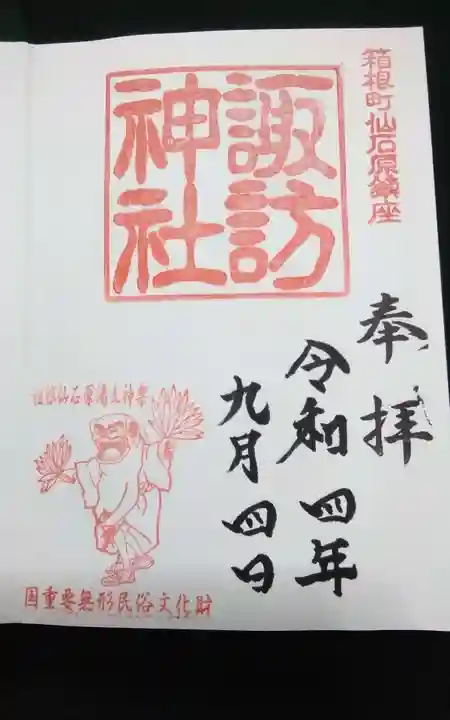 箱根町仙石原鎮座
奉拝
諏訪
神社
令和四年
九月四日
箱根仙石原湯立神楽
国重要無形民俗文化財